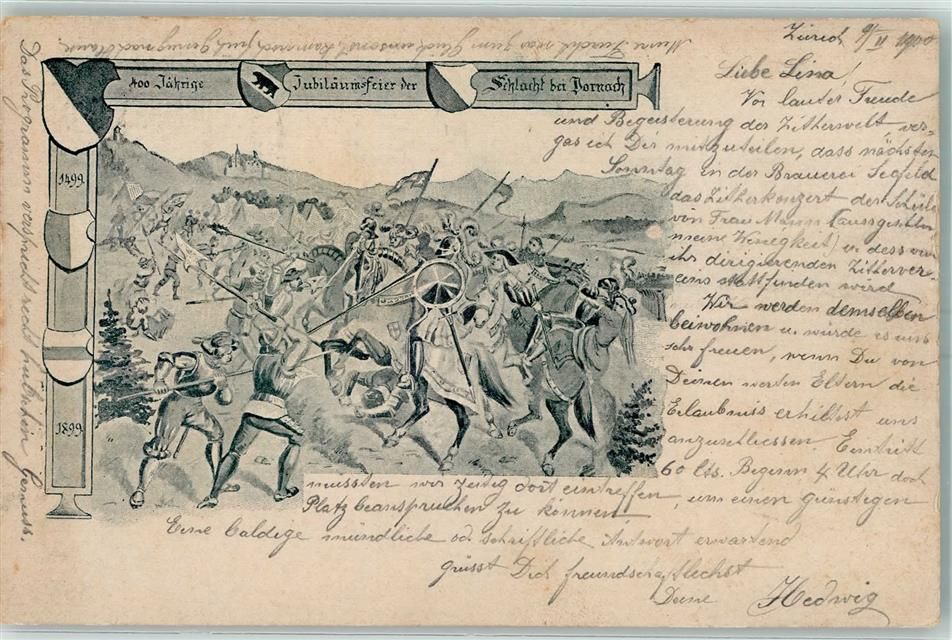 Zürich 9/II 1900
400 Jährige Jubiläumsfeier der Schlacht bei Dornach
1499
1899
Liebe Lina!
Vor lauter Freude
und Begeisterung der Zitherwelt, ver-
gass ich Dir mitzuteilen, dass nächsten
Sonntag in der Brauerei Seefeld
das Zitherkonzert der Schüler
von Frau Mann (ausgenommen
meine Wenigkeit) u. dess von
ihr dirigierenden Zitherver-
eins stattfinden wird
Wir werden demselben
beiwohnen u. würde es uns
sehr freuen, wenn Du von
Deinen werten Eltern die
Erlaubniss erhieltest uns
anzuschliessen. Eintritt
60 Cts. Beginn 4 Uhr doch
mussten wir zeitig dort eintreffen, um einen günstigen
Platz beanspruchen zu können
Eine baldige mündliche od. schriftliche Antwort erwartend
grüsst Dich freundschaftlichst
Deine Hedwig
Das Programm verspricht recht hübschen Genuss.
Meine Furcht war zum Glück umsonst, kam noch früh genug nach Hause.